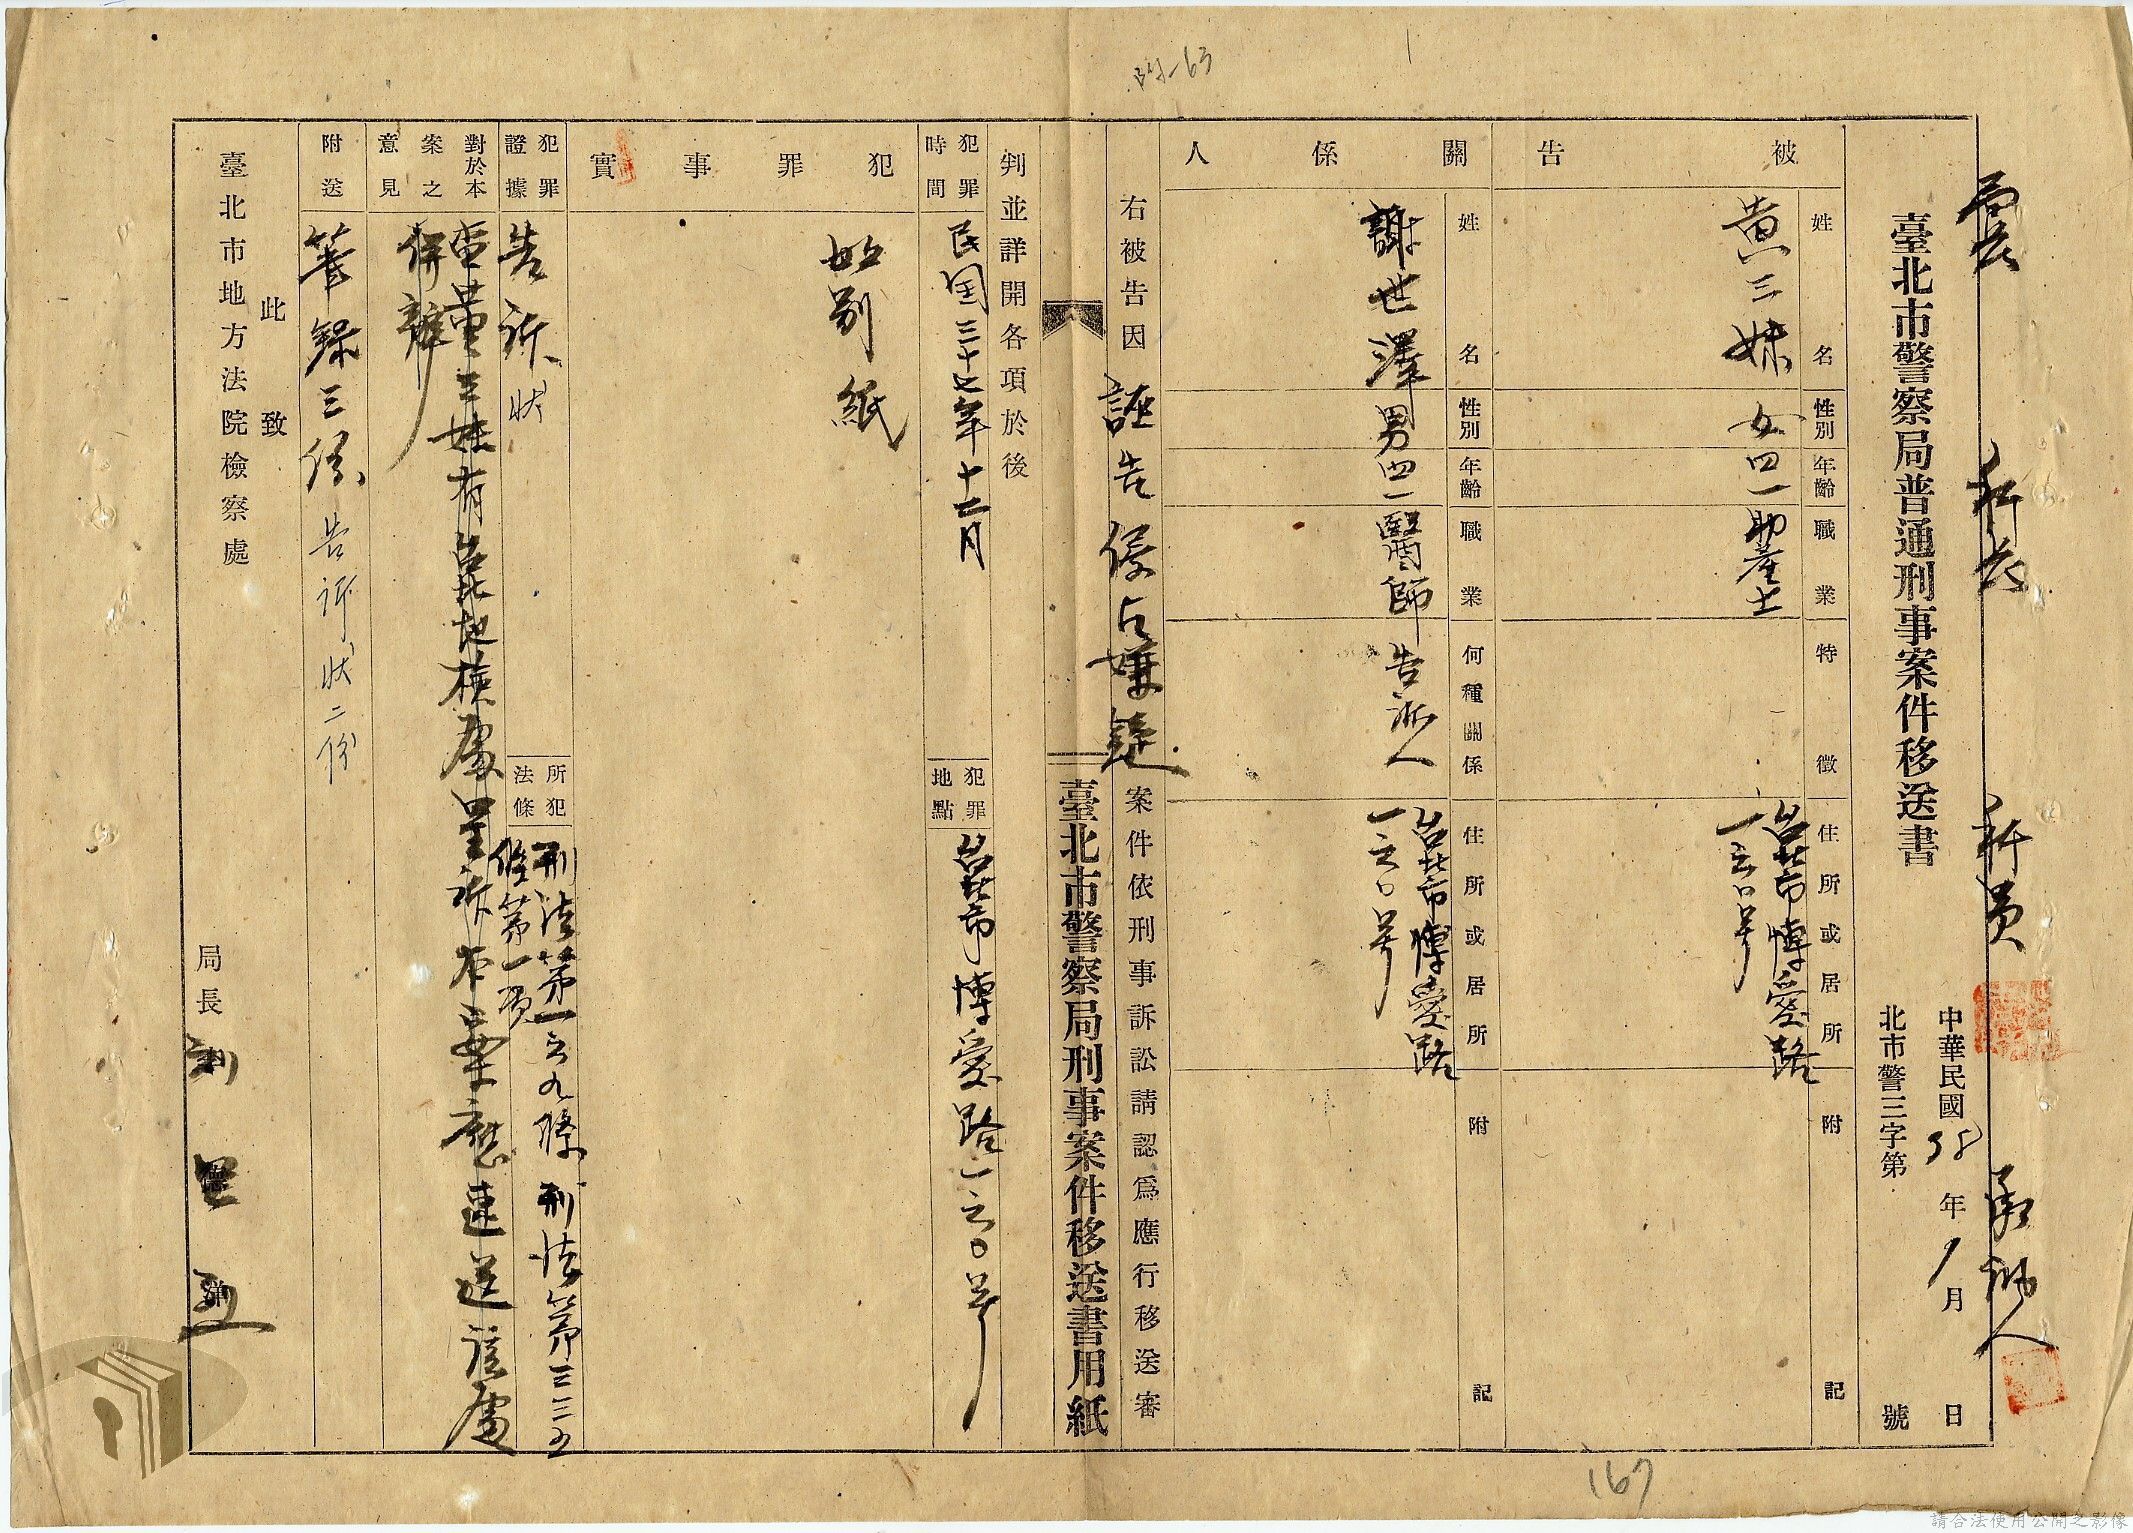 附-63
科長
科員
承辦人
臺北市警察局普通刑事案件移送書
中華民國38年1月 日
北市警三字第 號
被告
姓名
黃三妹
性別
女
年齡
四一
職業
助產士
特徵
住所或居所
台北市博愛路
一六〇號
附記
關係人
姓名
謝世澤
性別
男
年齡
四一
職業
醫師
何種關係
告訴人
住所或居所
台北市博愛路
一六〇號
附記
右被告因誣告侵占嫌疑案件依刑事訴訟請認為應行移送審
臺北市警察局刑事案件移送書用紙
判並詳開各項於後
犯罪時間
民國三十七年十二月
犯罪地點
台北市博愛路一六〇號
犯罪事實
如別紙
犯罪證據
告訴狀
所犯法條
刑法第一六九條刑法第三三五
條第一項
對於本案之意見
查黃三妹有台北地檢處呈訴本案應速送該處
併辦
附送
筆錄三份告訴狀二份
此致
臺北市地方法院檢察處
局長
167
請合法使用公開之影像